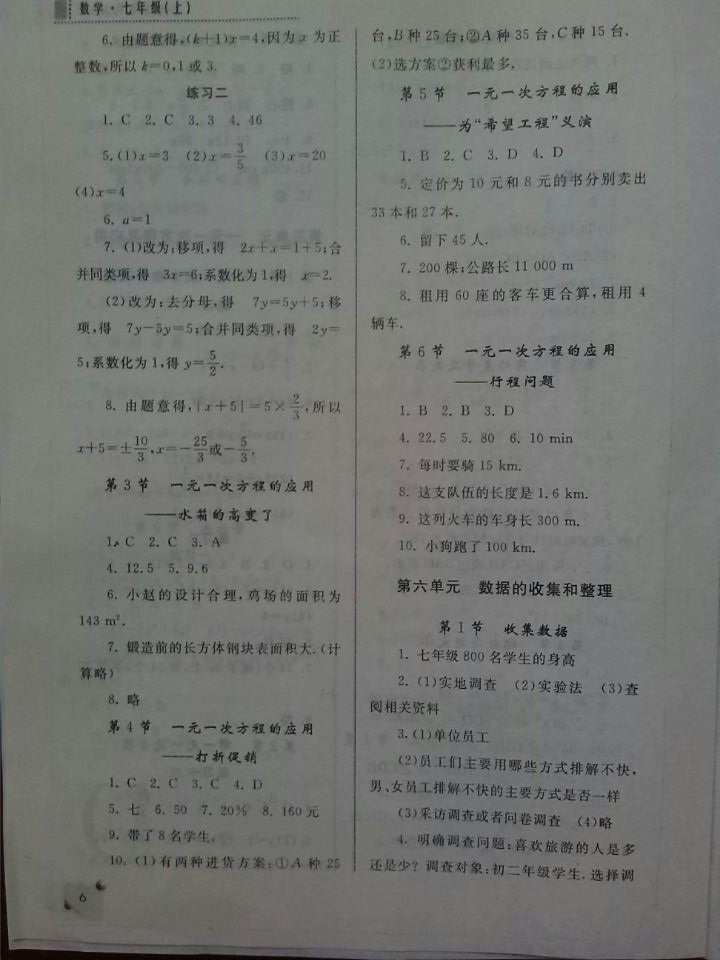 数学·七年级(上)
6. 由题意得,(k+1)x=4,因为 x 为正
整数,所以 k=0,1 或 3.
练习二
1. C 2. C 3. 3 4. 46
5. (1)x=3 (2)x=3/5 (3)x=20
(4)x=4
6. a=1
7. (1)改为:移项,得 2x+x=1+5;合
并同类项,得 3x=6;系数化为 1,得 x=2.
(2)改为:去分母,得 7y=5y+5;移
项,得 7y-5y=5;合并同类项,得 2y=
5;系数化为 1,得 y=5/2.
8. 由题意得,|x+5|=5×2/3,所以
x+5=±10/3,x=-25/3或-5/3.
第3节 一元一次方程的应用
——水箱的高变了
1. C 2. C 3. A
4. 12.5 5. 9.6
6. 小赵的设计合理,鸡场的面积为
143 m².
7. 锻造前的长方体钢块表面积大.(计
算略)
8. 略
第4节 一元一次方程的应用
——打折促销
1. C 2. C 3. C 4. D
5. 七 6. 50 7. 20% 8. 160 元
9. 带了 8 名学生.
10. (1)有两种进货方案:①A 种 25
台,B 种 25 台;②A 种 35 台,C 种 15 台.
(2)选方案②获利最多.
第5节 一元一次方程的应用
——为“希望工程”义演
1. B 2. C 3. D 4. D
5. 定价为 10 元和 8 元的书分别卖出
33 本和 27 本.
6. 留下 45 人.
7. 200 棵;公路长 11 000 m
8. 租用 60 座的客车更合算,租用 4
辆车.
第6节 一元一次方程的应用
——行程问题
1. B 2. B 3. D
4. 22.5 5. 80 6. 10 min
7. 每时要骑 15 km.
8. 这支队伍的长度是 1.6 km.
9. 这列火车的车身长 300 m.
10. 小狗跑了 100 km.
第六单元 数据的收集和整理
第1节 收集数据
1. 七年级 800 名学生的身高
2. (1)实地调查 (2)实验法 (3)查
阅相关资料
3. (1)单位员工
(2)员工们主要用哪些方式排解不快,
男、女员工排解不快的主要方式是否一样
(3)采访调查或者问卷调查 (4)略
4. 明确调查问题:喜欢旅游的人是多
还是少?调查对象:初二年级学生.选择调
6